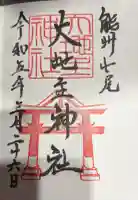 能州七尾
大地主神社
大地主
神社
令和五年 月二十六日